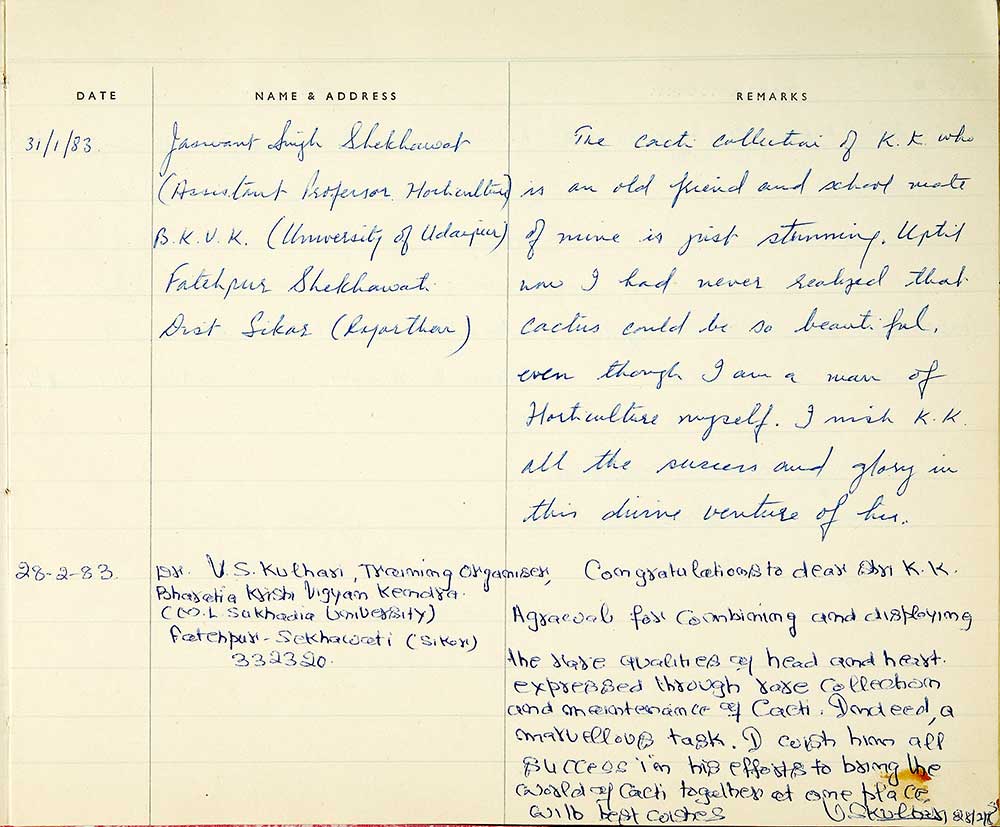 DATE NAME & ADDRESS REMARKS
31/1/83.
Jaswant Singh Shekhawat
(Assistant Professor Horticulture)
B.K.V.K. (University of Udaipur)
Fatehpur Shekhawati
Dist Sikar (Rajasthan)
The cacti collection of K.K. who
is an old friend and school mate
of mine is just stunning. Uptil
now I had never realized that
cactus could be so beautiful,
even though I am a man of
Horticulture myself. I wish K.K.
all the success and glory in
this divine venture of his.
28-2-83.
Dr. V.S. Kulhari, Training Organiser,
Bharatia Krishi Vigyan Kendra.
(M.L Sukhadia University)
Fatehpur-Sekhawati (Sikar)
332320.
Congratulations to dear Shri K.K.
Agrawal for combining and displaying
the rare qualities of head and heart.
expressed through rare collection
and maintenance of Cacti. Indeed, a
marvellous task. I wish him all
success in his efforts to bring the
world of cacti together at one place.
with best wishes
VSKulhari 28/2/83